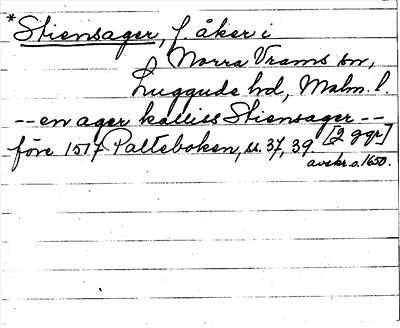 *Stiensager, f. åker i
Norra Vrams sn,
Luggude hd, Malm. l.
-- en ager kalliss Stiensager --
före 1517 Palteboken, s. 37, 39 [2 ggr]
avskr. o. 1650.